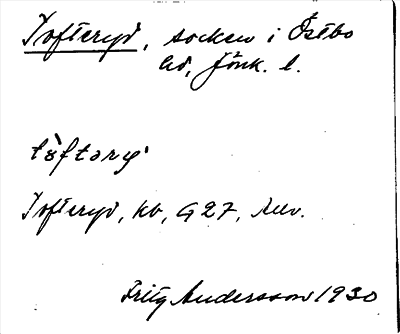 Tofteryd, socken i Östbo
hd, Jönk. l.
tòftəry
Tofteryd, kb, G27,
Fritz Andersson 1930